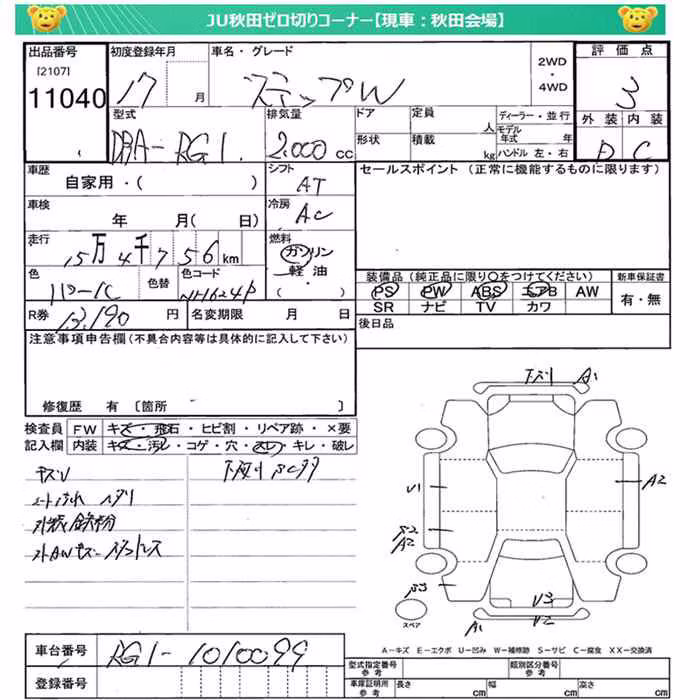 JU秋田ゼロ切りコーナー【現車：秋田会場】
出品番号 初度登録年月 車名・グレード 2WD・4WD 評価点
[2107]
11040 17 月 ステップW 3
型式 排気量 ドア 定員 人 ディーラー・並行 外装 内装
DBA-RG1. 2.000 cc 形状 積載 kg モデル年式 年 ハンドル 左・右 D C
車歴 シフト セールスポイント（正常に機能するものに限ります）
自家用・（ ） AT
車検 冷房
年 月（ 日） AC
走行 燃料
15万4千756km ガソリン
色 色替 色コード 軽油・ 装備品（純正品に限り○をつけてください） 新車保証書
パール NH624P （ ） PS PW ABS エアB AW 有・無
SR ナビ TV カワ
R券 13,190 円 名変期限 月 日 後日品
注意事項申告欄（不具合内容等は具体的に記入して下さい）
修復歴 有 〔箇所 〕
検査員 FW キズ・飛石・ヒビ割・リペア跡・×要
記入欄 内装 キズ・汚レ・コゲ・穴・スレ・キレ・破レ
下廻り A1
キズU
外装鉄粉
U1 A2
S2
A2
U3
A1 U2
スペア
A－キズ E－エクボ U－凹み W－補修跡 S－サビ C－腐食 XX－交換済
車台番号 RG1-1010099
登録番号
型式指定番号 参考 類別区分番号 参考
車庫証明用 参考 長さ cm 幅 cm 高さ cm